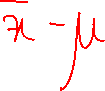 x̄ - μ